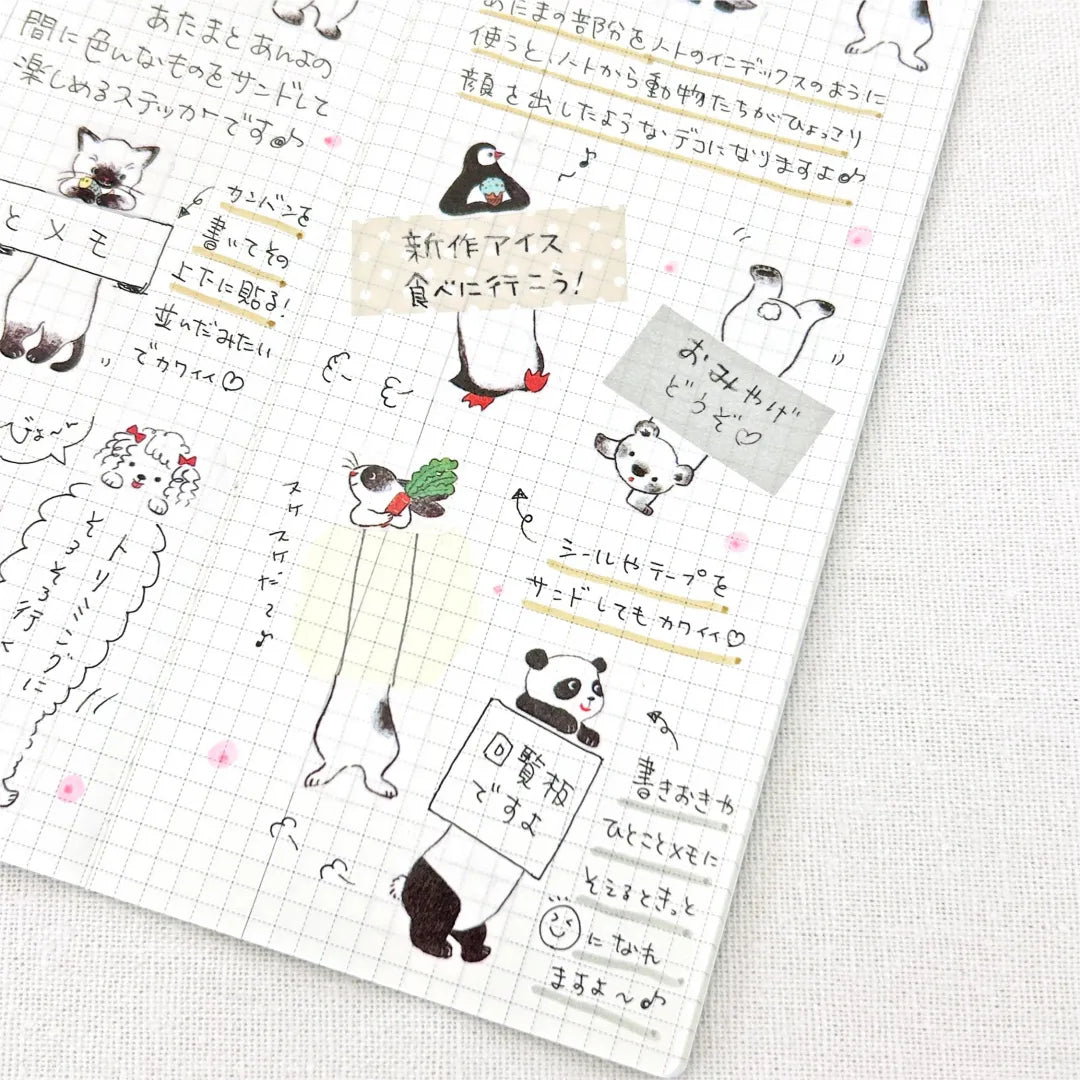 あたまとあんよの
間に色んなものをサンドして
楽しめるステッカーです♪
あたまの部分をノートのインデックスのように
使うと、ノートから動物たちがひょっこり
顔を出したようなデコになりますよ♪
とメモ
カンバンを
書いてその
上下に貼る!
並んだみたい
でカワイイ♡
新作アイス
食べに行こう!
おみやげ
どうぞ♡
トリミングに
そろそろ行
スケスケだ〜♪
シールやテープを
サンドしてもカワイイ♡
回覧板
ですよ
書きおきや
ひとことメモに
そえるときっと
になれ
ますよ〜♪